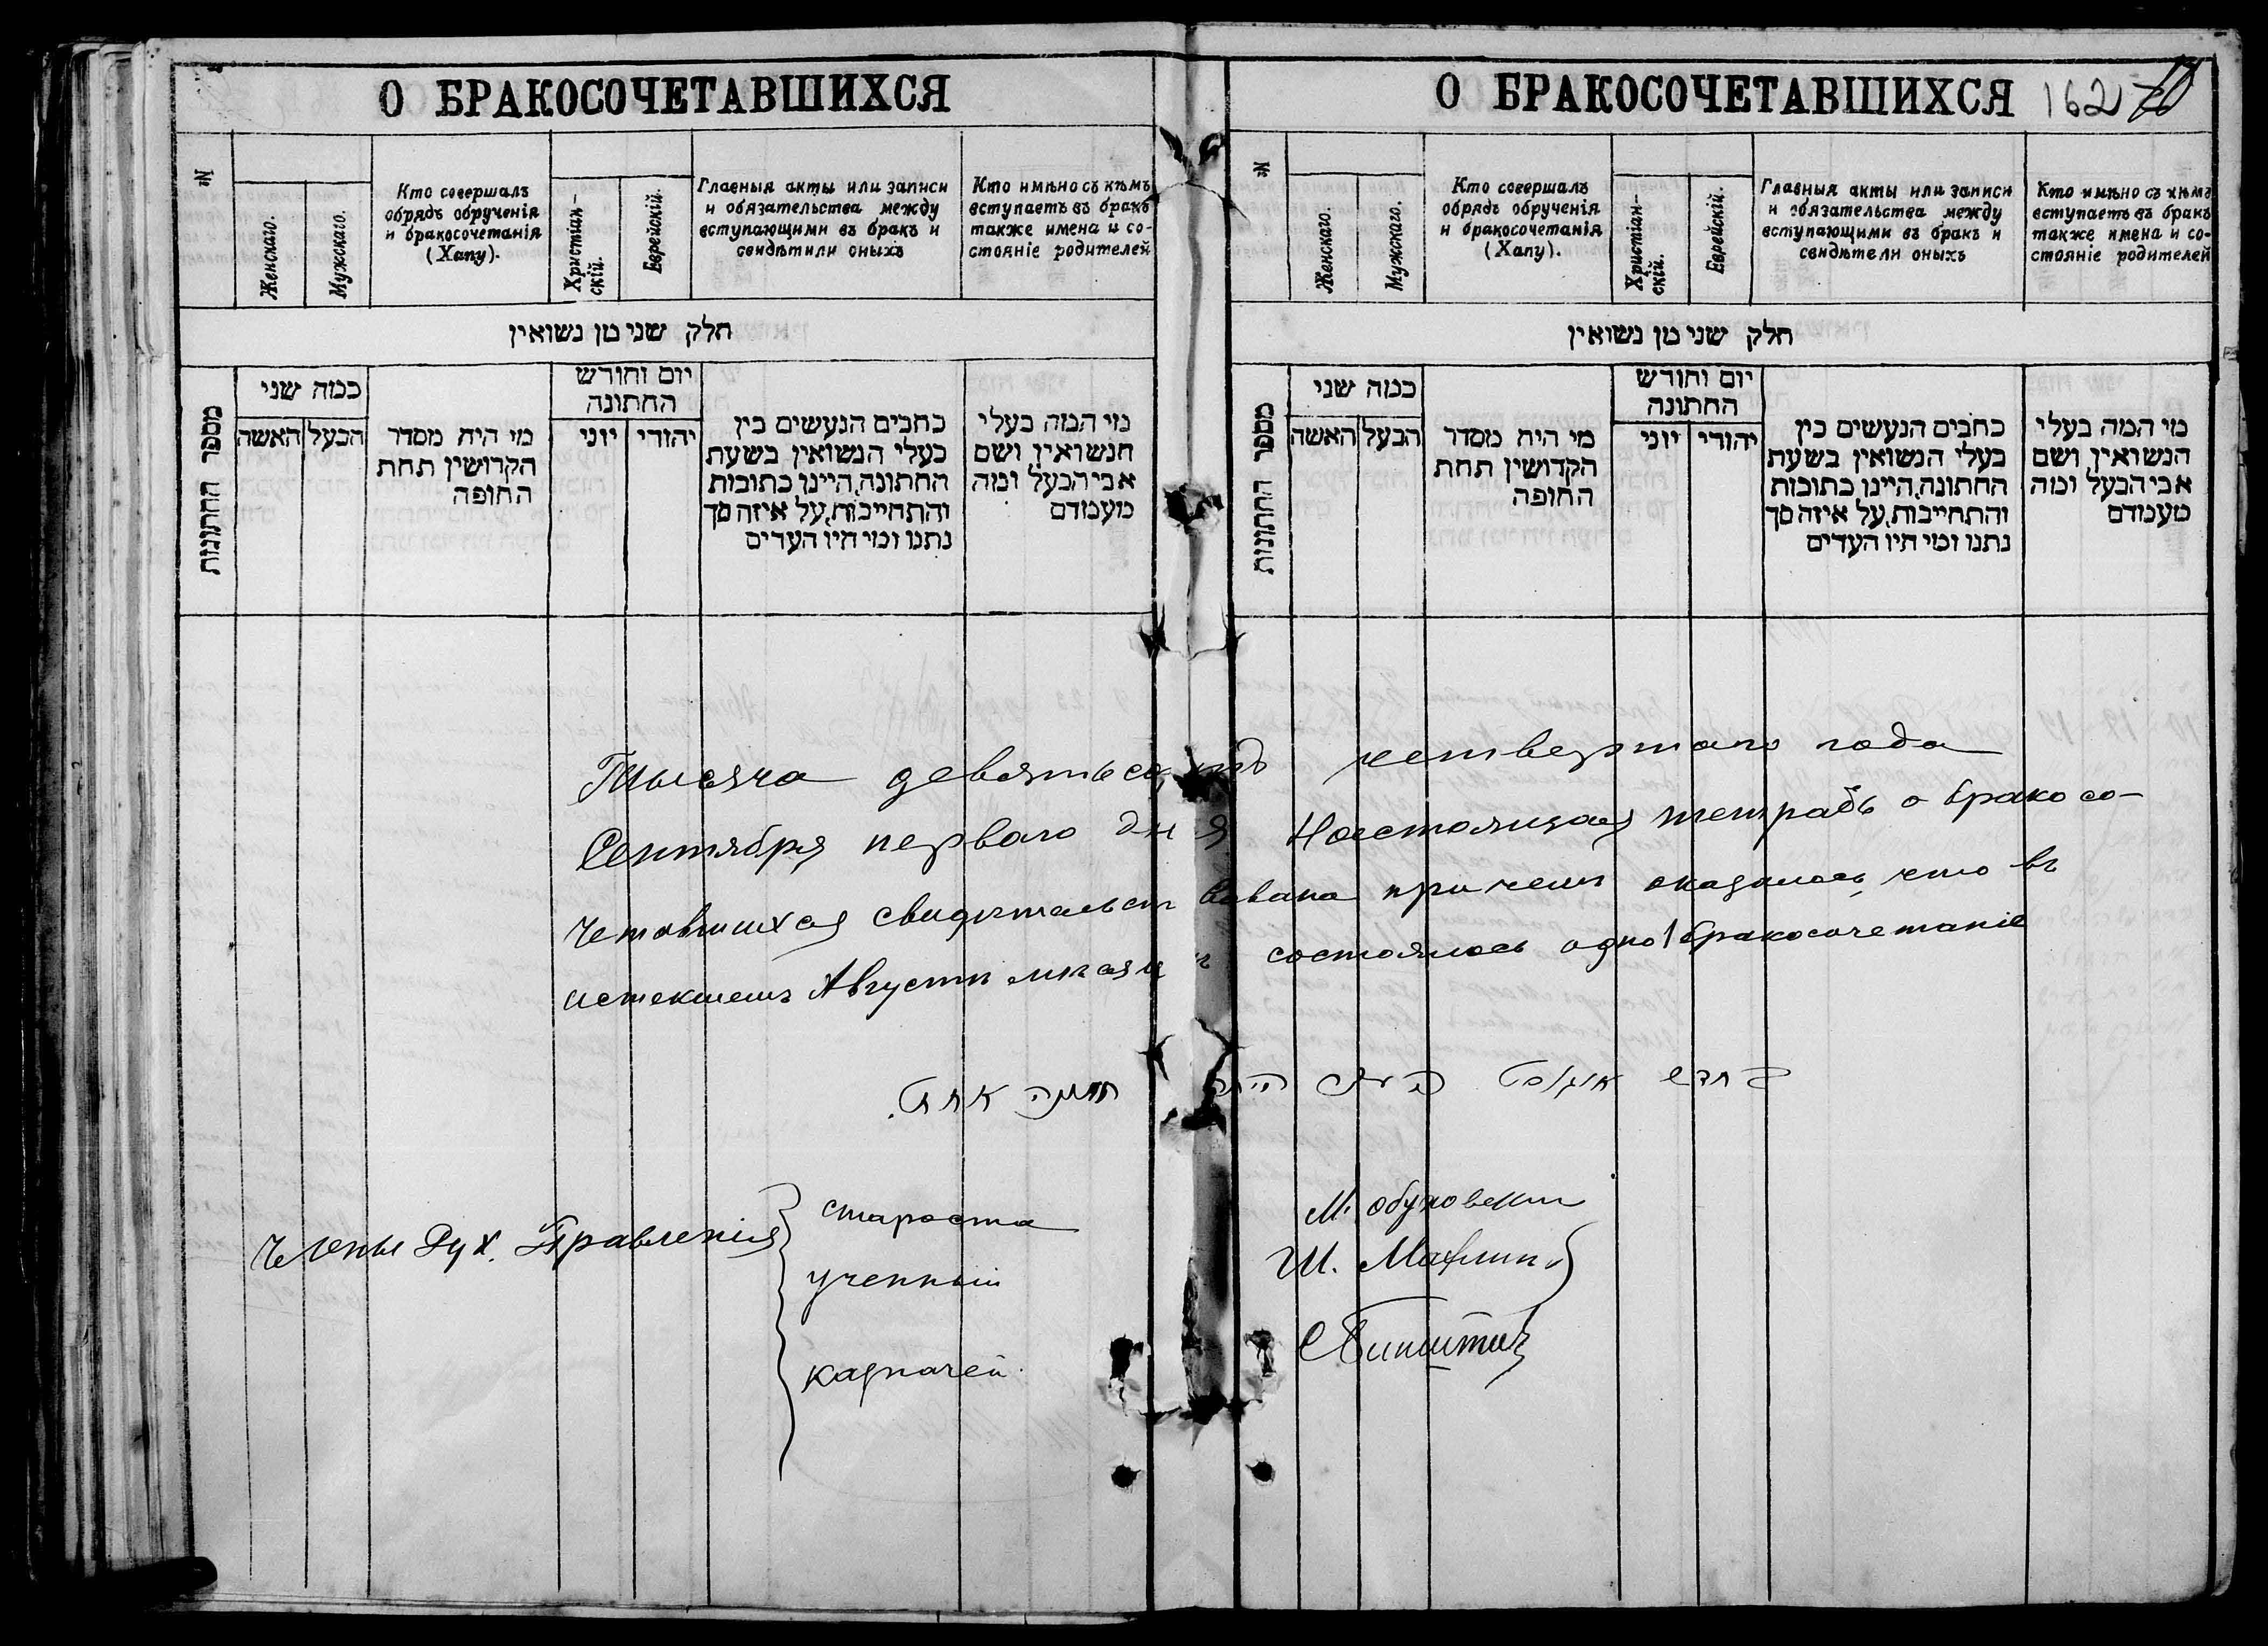 О БРАКОСОЧЕТАВШИХСЯ
№
Женскаго.
Мужскаго.
Кто совершалъ
обрядъ обрученія
и бракосочетанія
(Хапу).
Христіан-
скій.
Еврейскій.
Главныя акты или записи
и обязательства между
вступающими въ бракъ и
свидѣтили оныхъ
Кто имѣно съ кѣмъ
вступаетъ въ бракъ
также имена и со-
стояніе родителей
חלק שני מן נשואין
מספר החתונות
כמה שני
האשה
הבעל
מי היה מסדר
הקדושין תחת
החופה
יום וחודש
החתונה
יוני
יהודי
כתבים הנעשים בין
בעלי הנשואין בשעת
החתונה, היינו כתובות
והתחייבות, על איזה סך
נתנו ומי היו העדים
מי המה בעלי
הנשואין ושם
אבי הבעל ומה
מעמדם
О БРАКОСОЧЕТАВШИХСЯ 162
№
Женскаго.
Мужскаго.
Кто совершалъ
обрядъ обрученія
и бракосочетанія
(Хапу).
Христіан-
скій.
Еврейскій.
Главныя акты или записи
и обязательства между
вступающими въ бракъ и
свидѣтели оныхъ
Кто имѣно съ кѣмъ
вступаетъ въ бракъ
также имена и со-
стояніе родителей
חלק שני מן נשואין
מספר החתונות
כמה שני
האשה
הבעל
מי היה מסדר
הקדושין תחת
החופה
יום וחודש
החתונה
יוני
יהודי
כתבים הנעשים בין
בעלי הנשואין בשעת
החתונה, היינו כתובות
והתחייבות, על איזה סך
נתנו ומי היו העדים
מי המה בעלי
הנשואין ושם
אבי הבעל ומה
מעמדם
Тысяча девятьсотъ четвертаго года
Сентября перваго дня Настоящая тетрадь о бракосо-
четавшихся свидѣтельствована причемъ оказалось, что въ
истекшемъ Августѣ мѣсяцѣ состоялось одно 1 бракосочетаніе
בחדש אוגוסט היתה חתונה אחת.
Члены Дух. Правленія
староста М. Обуховскій
ученный Ш.
казначей